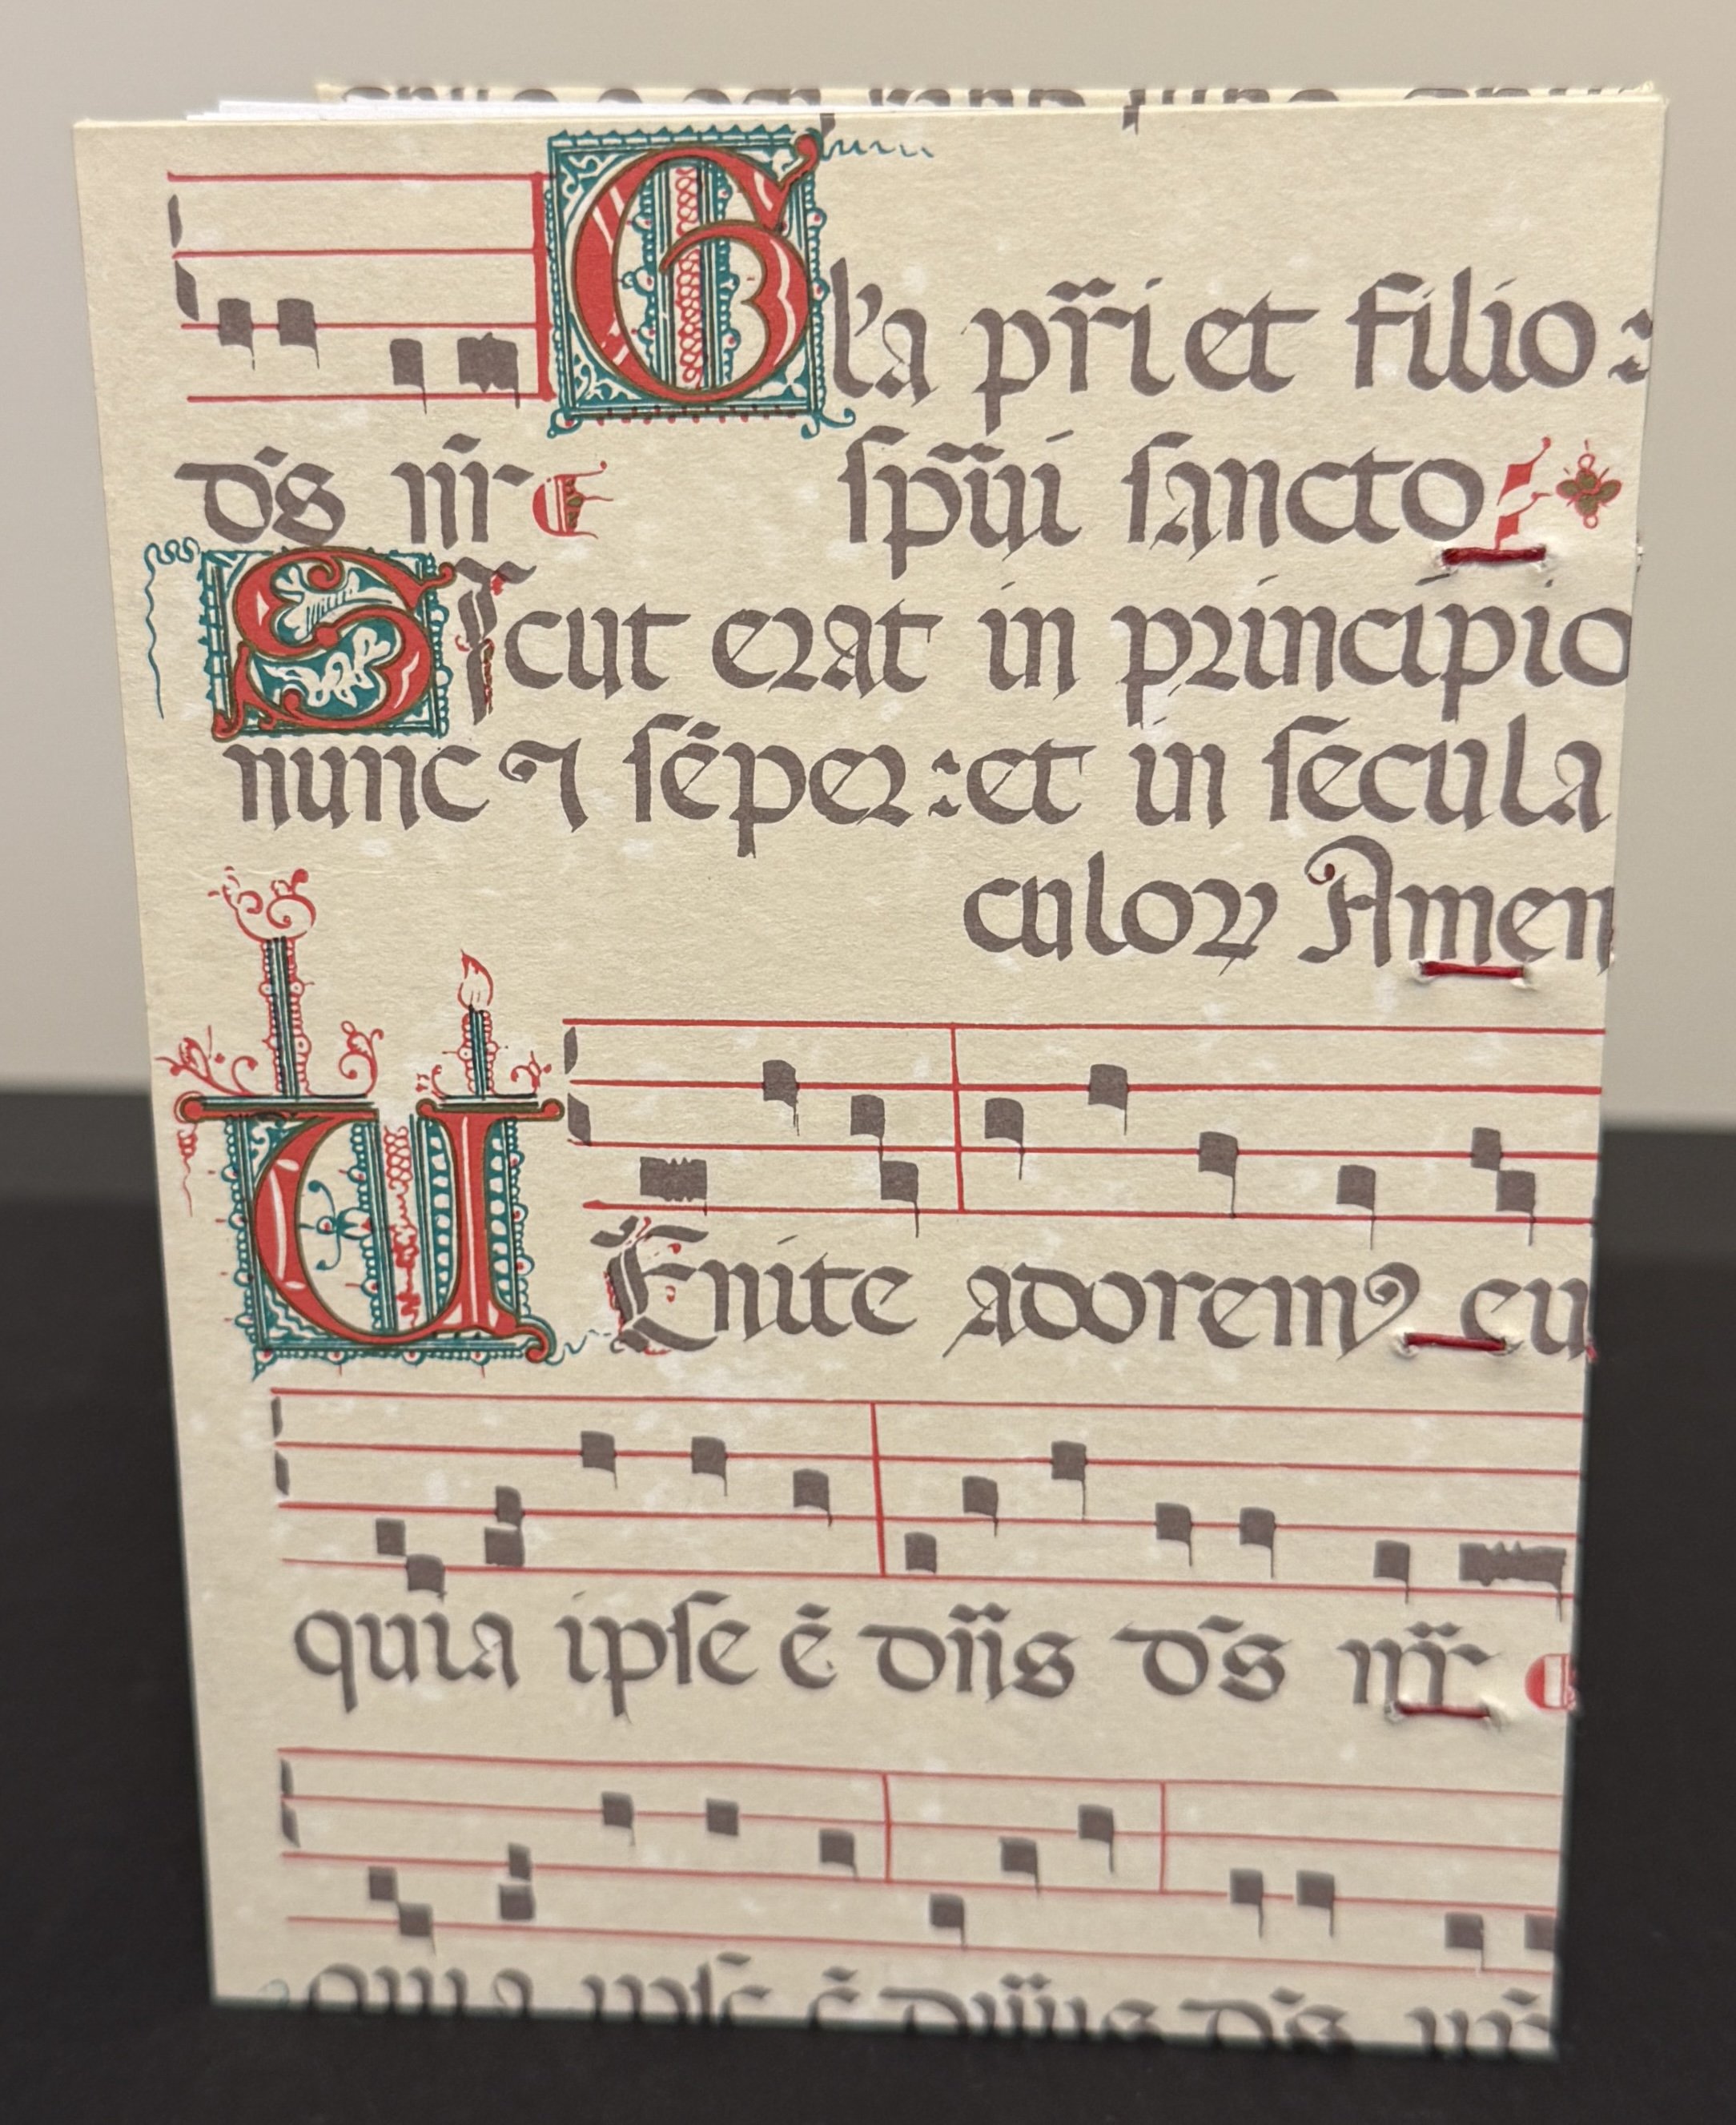 Gl'a pr̄i et filio :
ds̄ nr̄
ſpūi ſancto
SIcut erat in principio
nunc ⁊ ſēper : et in ſecula
culoꝝ Amen
UEnite adoremꝰ eu
quia ipſe ē dn̄s ds̄ nr̄
quia ipſe ē dn̄us ds̄ nr̄